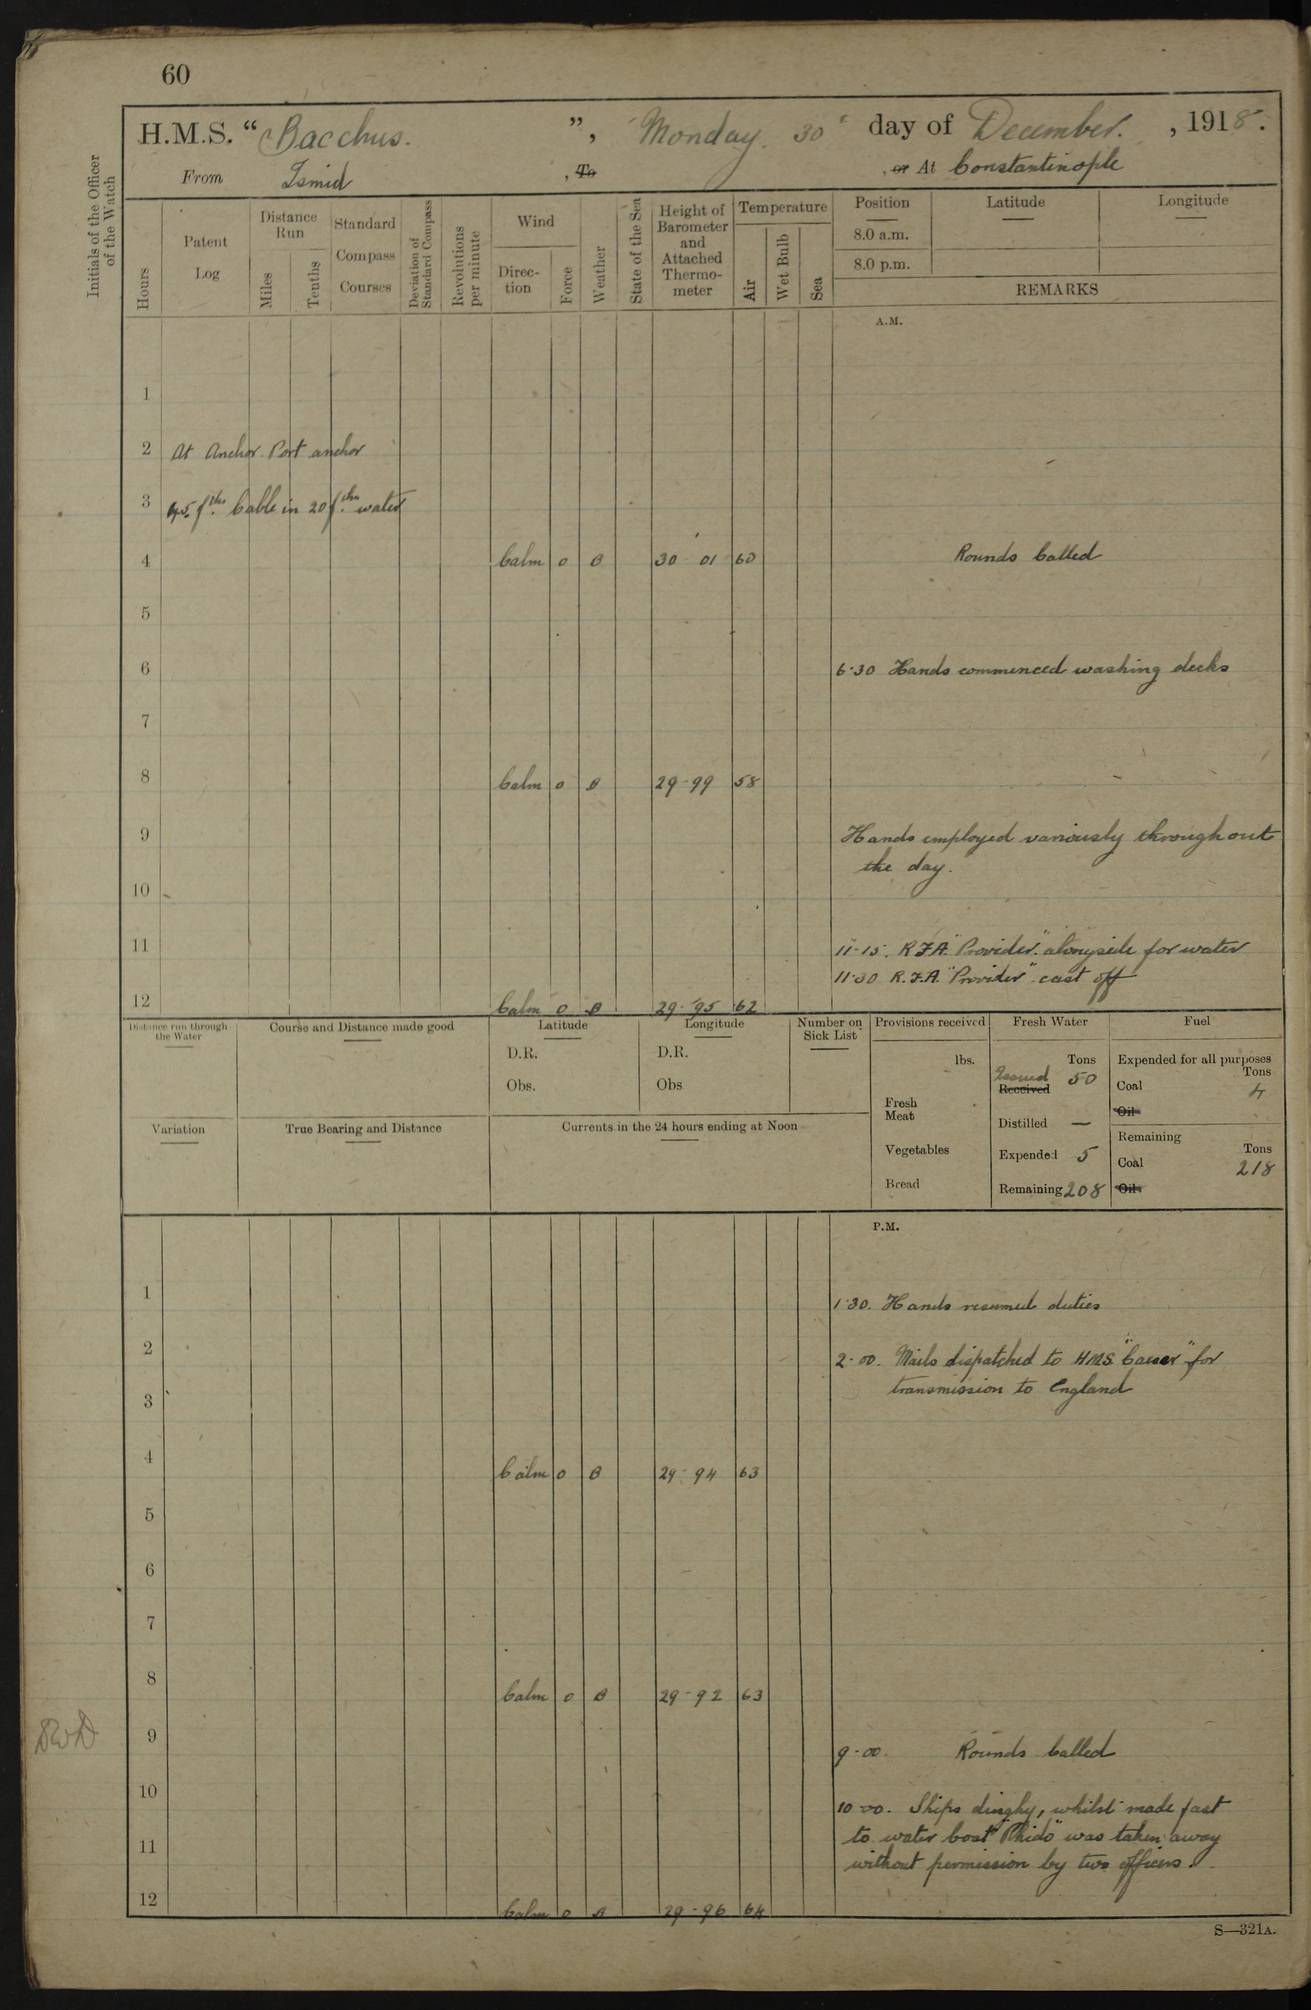 60
H.M.S. “Bacchus.”, Monday 30th day of December, 1918.
From Ismid, To , or At Constantinople
Initials of the Officer of the Watch
Hours
Patent Log
Distance Run
Miles
Tenths
Standard Compass Courses
Deviation of Standard Compass
Revolutions per minute
Wind
Direction
Force
Weather
State of the Sea
Height of Barometer and Attached Thermometer
Temperature
Air
Wet Bulb
Sea
Position
Latitude
Longitude
8.0 a.m.
8.0 p.m.
REMARKS
A.M.
1
2 At Anchor Port anchor
3 45 fths Cable in 20 fthm water
4 Calm 0 B 30 01 60 Rounds Called
5
6 6·30 Hands commenced washing decks
7
8 Calm 0 B 29-99 58
9 Hands employed variously throughout
the day.
10
11 11-15. R.F.A. "Provider" alongside for water
11·30 R.F.A. "Provider" cast off
12 Calm 0 B 29-95 62
Distance run through the Water
Course and Distance made good
Latitude
D.R.
Obs.
Longitude
D.R.
Obs
Number on Sick List
Provisions received
lbs.
Fresh Meat
Vegetables
Bread
Fresh Water
Tons
Issued 50
Received
Distilled —
Expended 5
Remaining 208
Fuel
Expended for all purposes
Tons
Coal 4
Oil
Remaining
Tons
Coal 218
Oil
Variation
True Bearing and Distance
Currents in the 24 hours ending at Noon
P.M.
1 1·30. Hands resumed duties
2 2-00. Mails dispatched to HMS "Caesar" for
transmission to England
3
4 Calm 0 B 29-94 63
5
6
7
8 Calm 0 B 29-92 63
9 9-00. Rounds Called
10 10-00. Ships dinghy, whilst made fast
to water boat "Phido" was taken away
11 without permission by two officers.
12 Calm 0 B 29-96 64
S—321A.